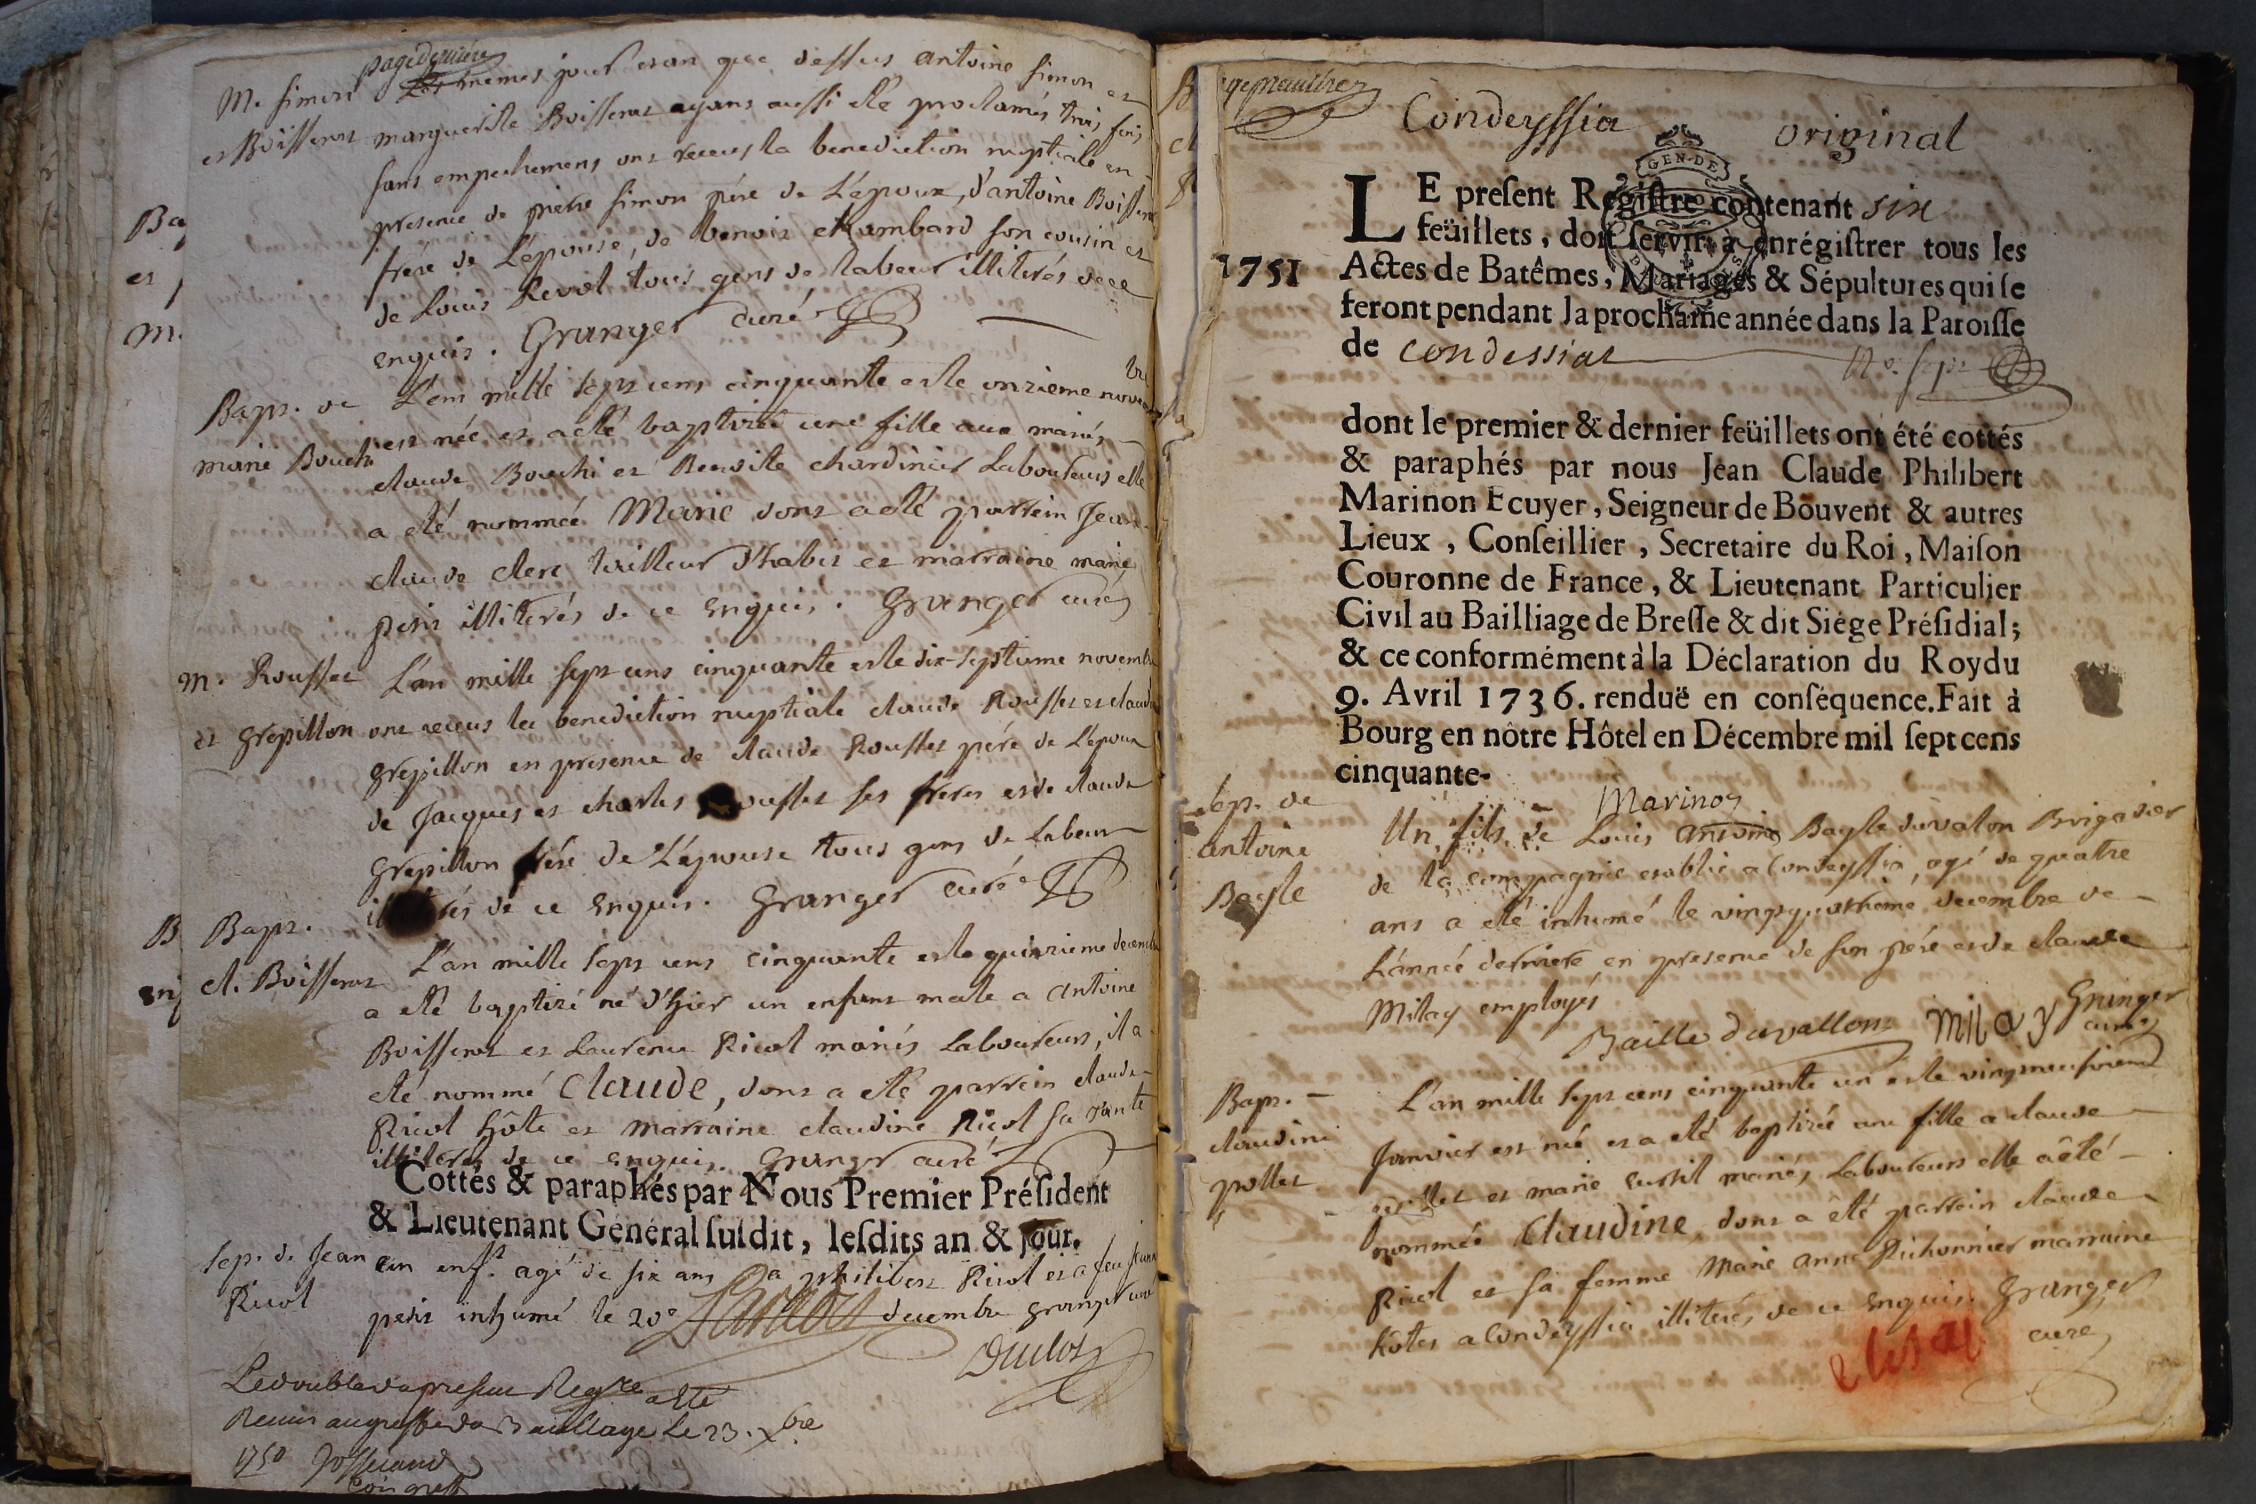 page dernière
M. Simon Les memes jour et an que dessus antoine Simon et
et Boisserat marguerite Boisserat ayans aussi eté proclamés trois fois
sans empechemens ont receus la benediction nuptiale en
presence de pierre Simon père de L'époux, d'antoine Boisserat
frère de L'épouse, de benoit chambard son cousin et
de Louis Revol tous gens de labeur illiterés de ce
enquis. Granger curé
Bapt. de L'an mille sept cens cinquante et le onzieme novembre
marie Bouchi est née et a eté baptisée une fille aux mariés
claude Bouchi et Benoite chardinier Laboureurs elle
a eté nommée Marie dont a eté parrein Jean
claude clerc tailleur d'habit et marraine marie
petit illiterés de ce enquis. Granger curé
M. Rousset L'an mille sept cens cinquante et le dix-septieme novembre
et grepillon ont receus la benediction nuptiale claude Rousset et claudine
grepillon en presence de claude Rousset père de L'epoux
de Jacques et charles Rousset ses frères et de claude
grepillon père de L'épouse tous gens de Labeur
illiterés de ce enquis. Granger curé
Bapt. L'an mille sept cens cinquante et le quinzieme decembre
cl. Boisserat a eté baptizé né d'hier un enfant male a antoine
Boisserat et Laurence Ricol mariés Laboureurs, il a
eté nommé Claude, dont a eté parrein claude
Ricol hôte et marraine claudine Ricol sa tante
illiterés de ce enquis. Granger curé
Cottés & paraphés par Nous Premier Président
& Lieutenant Général susdit, lesdits an & jour.
Sep. de Jean un enft. agé de six ans a philibert Ricol et a feu
Ricol petit inhumé le 20e decembre granger curé
Duclos
Le double du present Regre a eté
Remis au greffe du Bailliage le 23. xbre
1750 Josserand
Coin greff
Condeyssia original
GEN·DE
LE present Registre contenant six
feüillets, doit servir à enrégistrer tous les
1751 Actes de Batêmes, Mariages & Sépultures qui se
feront pendant la prochaine année dans la Paroisse
de condessiat
dont le premier & dernier feüillets ont été cottés
& paraphés par nous Jean Claude Philibert
Marinon Ecuyer, Seigneur de Bouvent & autres
Lieux, Conseillier, Secretaire du Roi, Maison
Couronne de France, & Lieutenant Particulier
Civil au Bailliage de Bresse & dit Siége Présidial;
& ce conformément à la Déclaration du Roy du
9. Avril 1736. renduë en conséquence. Fait à
Bourg en nôtre Hôtel en Décembre mil sept cens
cinquante.
Marinon
Sep. de Un fils de Louis antoine Bayle duvalon Brigadier
antoine de la compagnie etablie a Condeyssia, agé de quatre
Bayle ans a eté inhumé le vingtquatrieme decembre de
L'année derniere en presence de son père et de claude
Milay employés
Baille duvallon milay Granger
curé
Bapt. L'an mille sept cens cinquante un et le vingtneufvieme
claudine Janvier est née et a eté baptizée une fille a claude
pollet pollet et marie mariés Laboureurs elle a eté
nommée Claudine dont a eté parrein claude
Ricol et sa femme Marie anne Richonnier marraine
hôtes a Condeyssia illiterés de ce enquis. Granger
curé